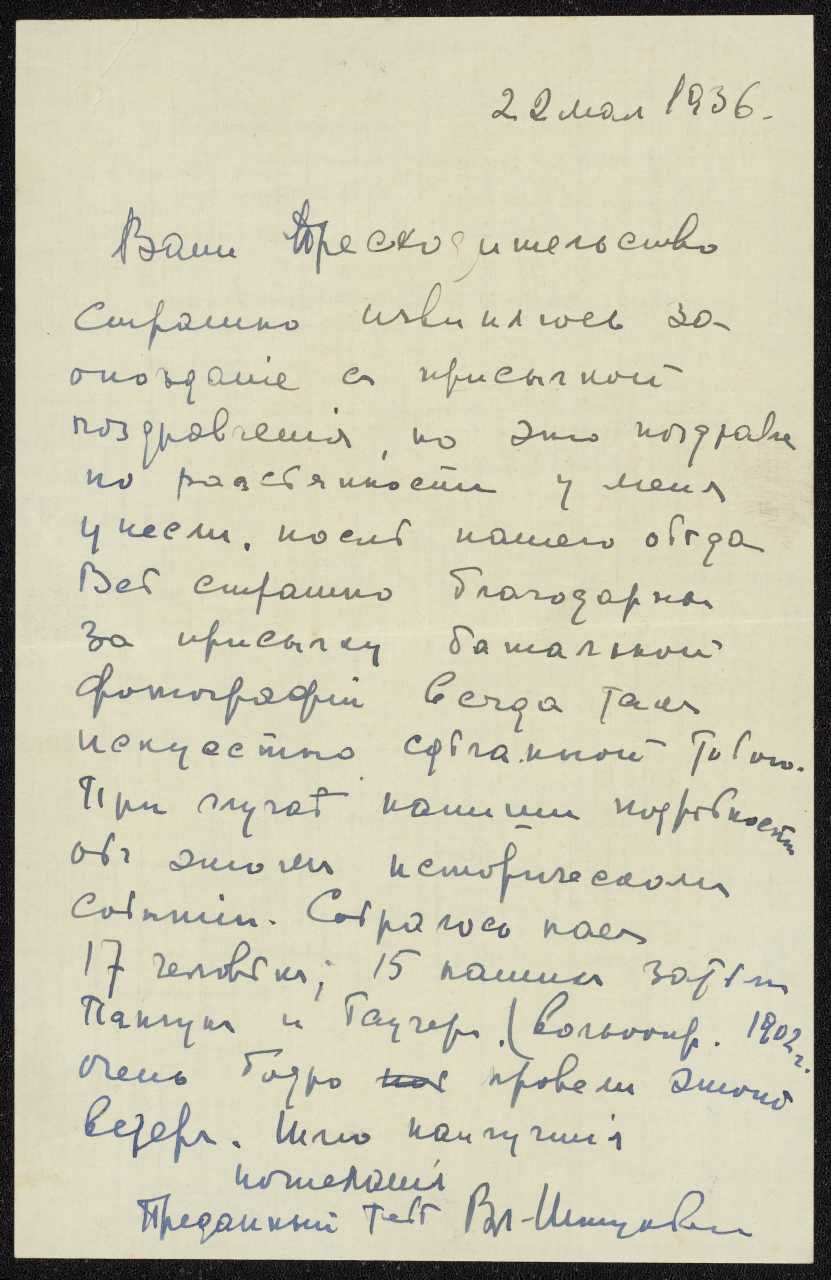 22 мая 1936.
Ваше Превосходительство
страшно извиняюсь за
опозданіе съ присылкой
поздравленія, но это поздравле
по разсѣянности у меня
унесли. послѣ нашего обѣда
Всѣ страшно благодарны
за присылку батальной
фотографіи всегда такъ
искусстно сдѣланной Тобою.
При случаѣ напиши подробности
объ этомъ историческомъ
событіи. Собралось насъ
17 человѣкъ; 15 нашихъ затѣмъ
и (вольноопр. 1902 г.
очень бодро провели этотъ
вечеръ. Шлю наилучшія
пожеланія
Преданный тебѣ Вл.